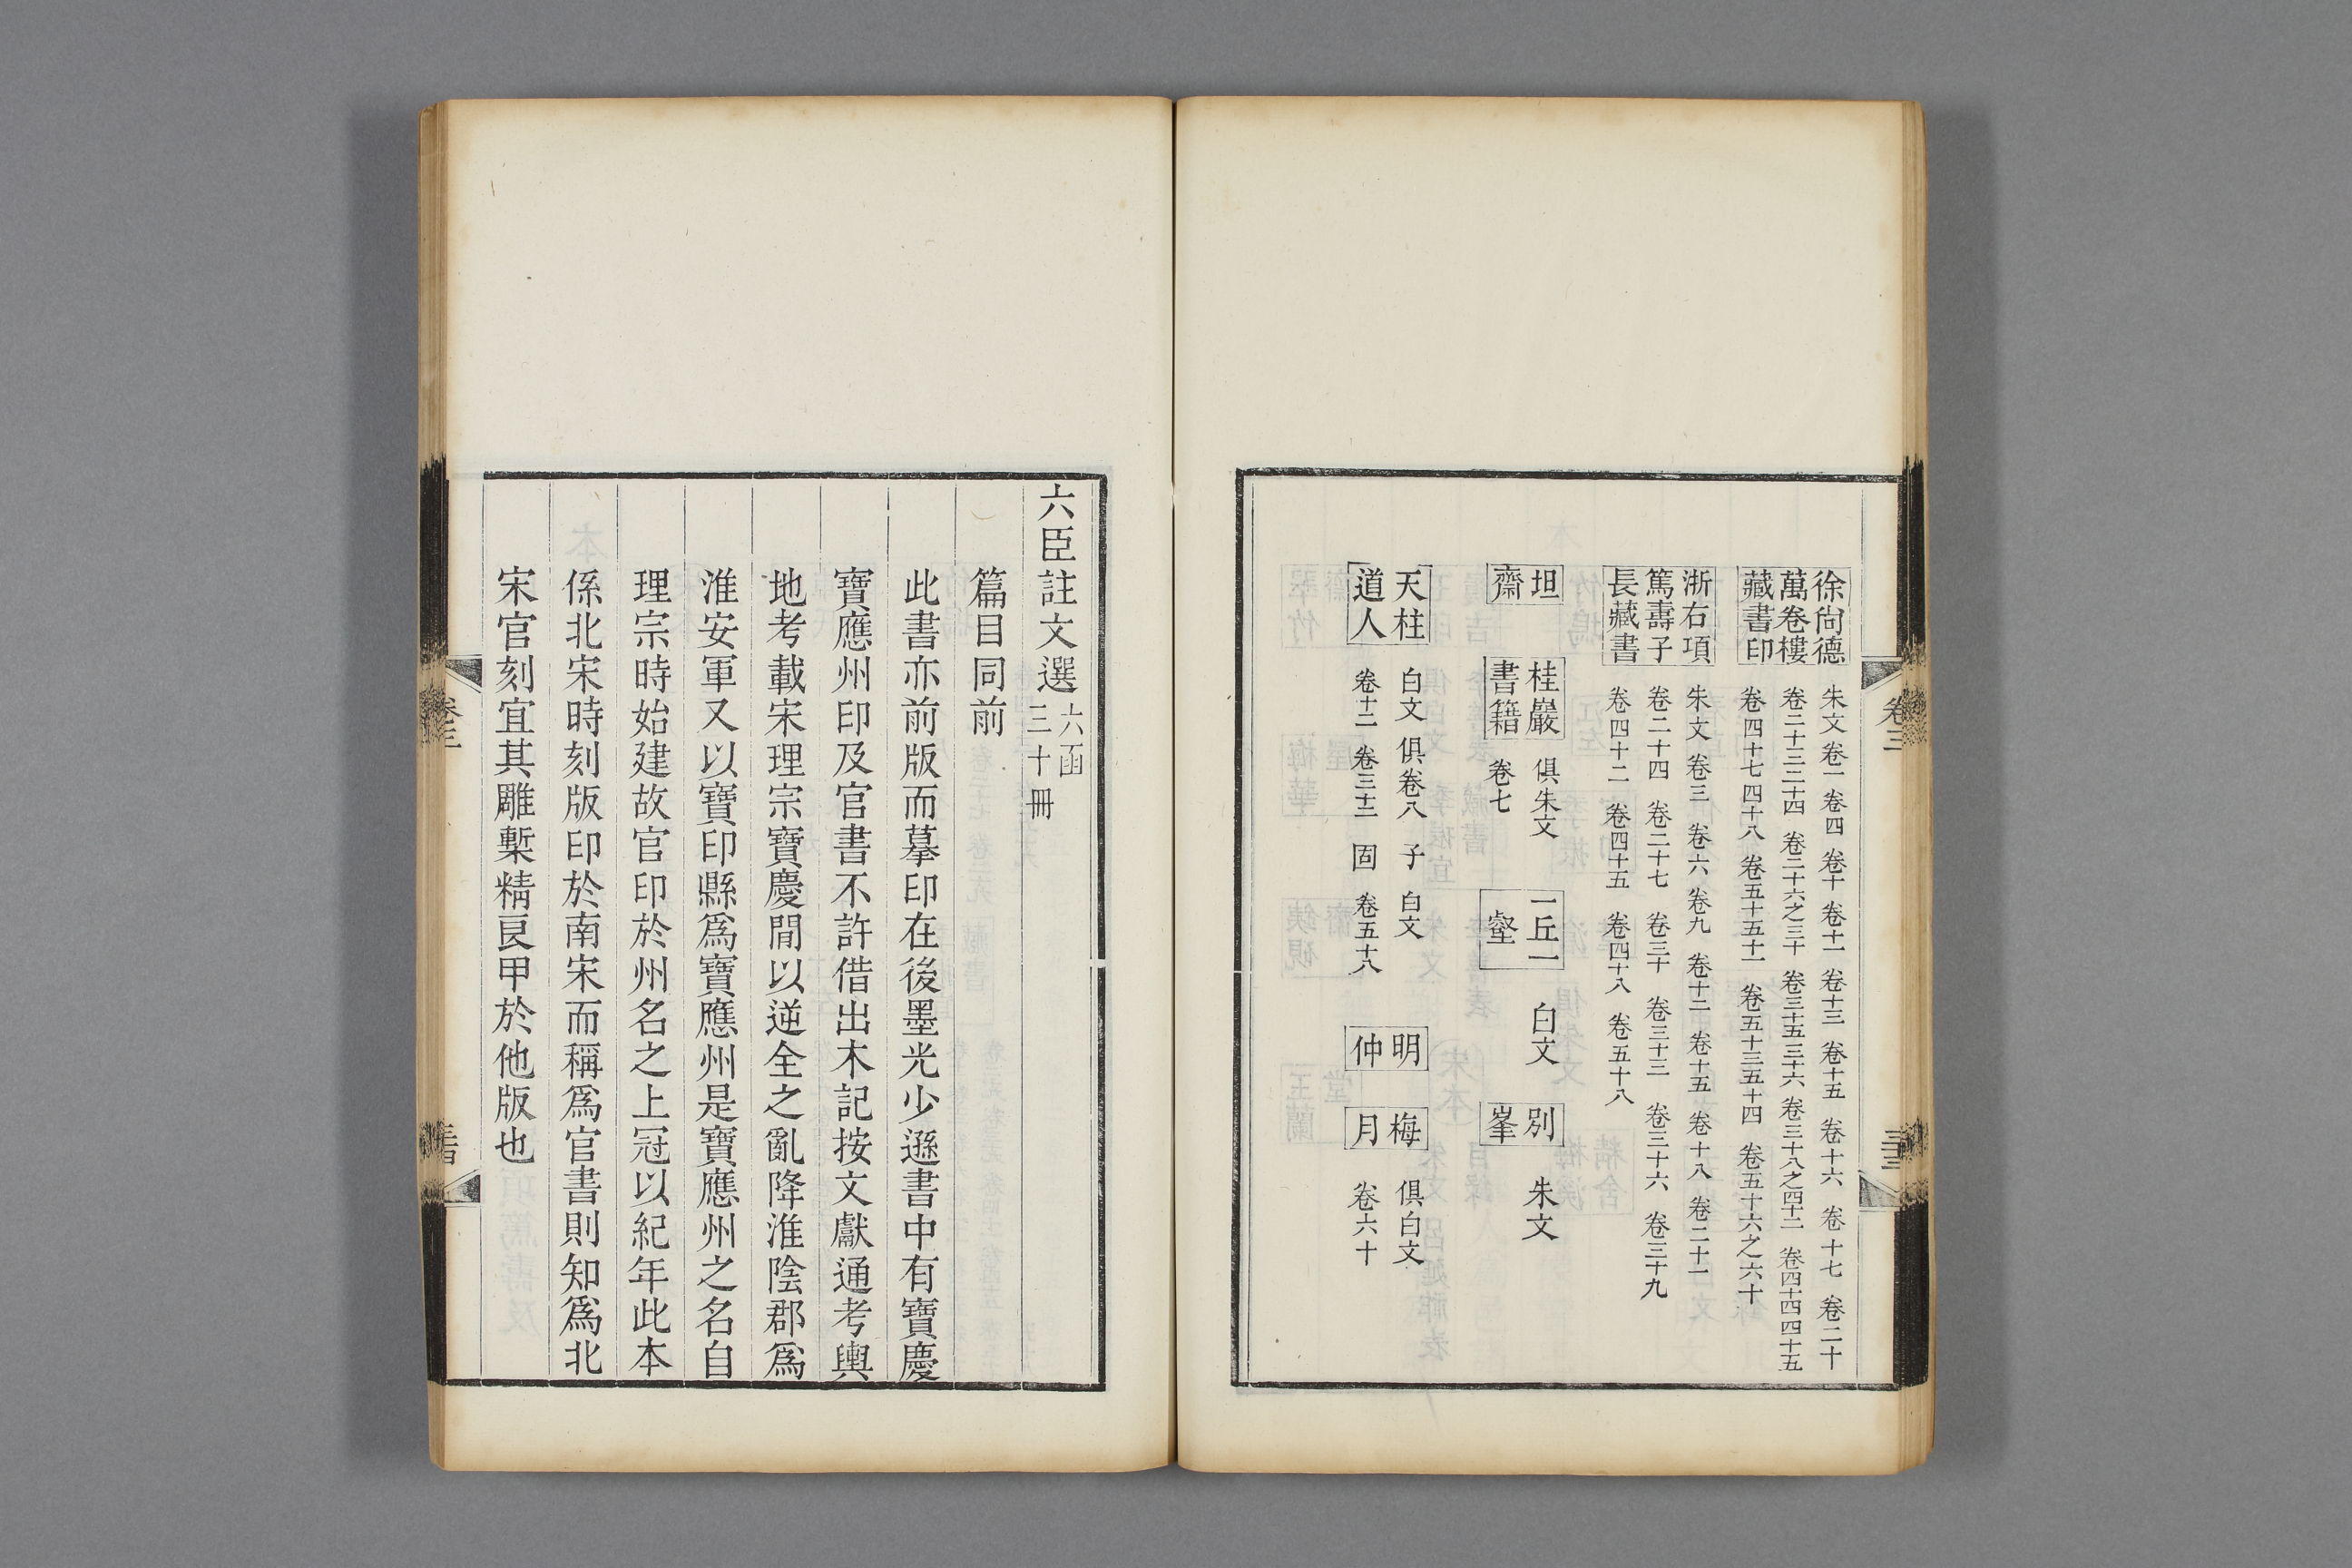 徐尙德
萬卷樓
藏書印
朱文 卷一 卷四 卷十 卷十一 卷十三 卷十五 卷十六 卷十七 卷二十
卷二十三二十四 卷二十六之三十 卷三十五三十六 卷三十八之四十二 卷四十四四十五
卷四十七四十八 卷五十五五十一 卷五十三五十四 卷五十六之六十
浙右項
篤壽子
長藏書
朱文 卷三 卷六 卷九 卷十二 卷十五 卷十八 卷二十一
卷二十四 卷二十七 卷三十 卷三十三 卷三十六 卷三十九
卷四十二 卷四十五 卷四十八 卷五十八
坦
齋
桂巖
書籍
俱朱文
卷七
一丘一
壑
白文
別
峯
朱文
天柱
道人
白文 俱卷八 子 白文
卷十二 卷三十二 固 卷五十八
明
仲
梅
月
俱白文
卷六十
卷三
三十三
六臣註文選 六函
三十冊
篇目同前
此書亦前版而摹印在後墨光少遜書中有寶慶
寶應州印及官書不許借出木記按文獻通考輿
地考載宋理宗寶慶閒以逆全之亂降淮陰郡爲
淮安軍又以寶印縣爲寶應州是寶應州之名自
理宗時始建故官印於州名之上冠以紀年此本
係北宋時刻版印於南宋而稱爲官書則知爲北
宋官刻宜其雕槧精良甲於他版也
卷三